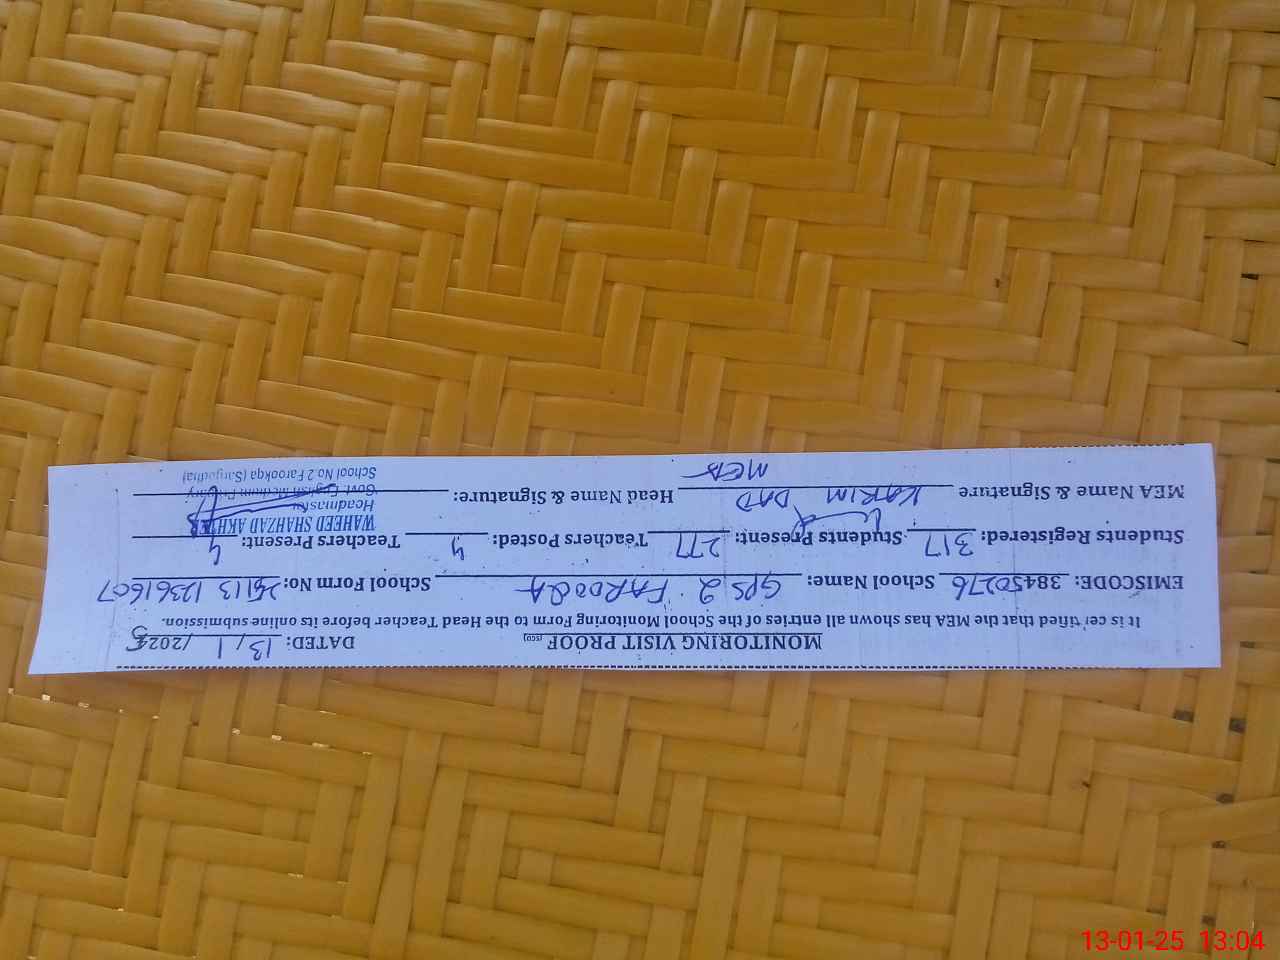 MONITORING VISIT PROOF DATED: 13/1/2025
It is certified that the MEA has shown all entries of the School Monitoring Form to the Head Teacher before its online submission.
EMISCODE: 38450276 School Name: GPS 2 FAROOQA School Form No:
Students Registered: 317 Students Present: 277 Teachers Posted: 4 Teachers Present: 4
MEA Name & Signature KARIM DAD Head Name & Signature:
MEA
WAHEED SHAHZAD AKHTAR
Headmaster
Govt. English Medium Primary
School No.2 Farookqa (Sargodha)
13-01-25 13:04